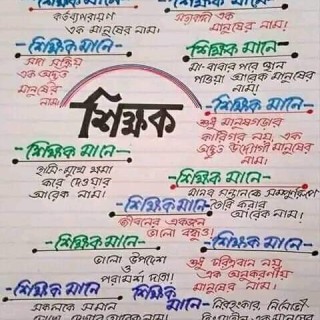 শিক্ষক মানে
কর্তব্যপরায়ণ
এক মানুষের নাম।
শিক্ষক মানে
সত্যবাদী এক
মানুষের নাম।
শিক্ষক মানে
সদা সক্রিয়
এক অদ্ভুত
মানুষের
নাম।
শিক্ষক মানে
মা-বাবার পরে স্থান
পাওয়া আরেক মানুষের
নাম।
শিক্ষক
শিক্ষক মানে
শুধু মানুষগড়ার
কারিগর নয়, এক
অদ্ভুত উদ্যোগী মানুষের
নাম।
শিক্ষক মানে
হাসি-মুখে ক্ষমা
করে দেওয়ার
আরেক নাম।
শিক্ষক মানে
মানব সন্তানকে
তৈরি করার
আরেক নাম।
শিক্ষক মানে
জীবনের একজন
ভালো বন্ধু।
শিক্ষক মানে
ভালো উপদেশ
ও
পরামর্শ দাতা।
শিক্ষক মানে
শুধু চরিত্রবান নয়,
এক অনুকরণীয়
মানুষের নাম।
শিক্ষক মানে
সকলকে সমান
শিক্ষক
মানে
নিরহংকার, নির্লোভী